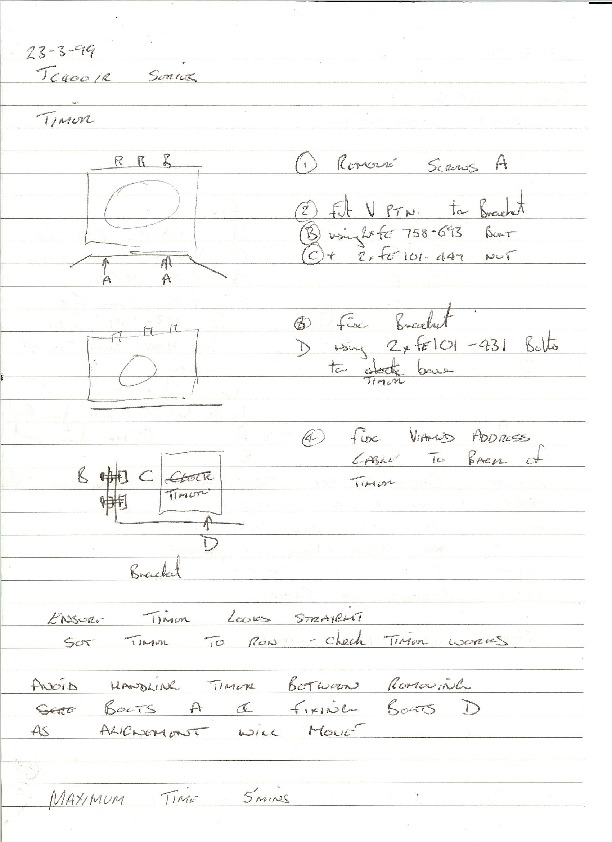 23-3-99
TIMER
R R B
① REMOVE SCREWS A
② fit V PTN. to Bracket
Ⓑ using 2xFE 758-693 Bolt
Ⓒ + 2xFE 101-447 NUT
A A
③ fix Bracket
D using 2xFE101-431 Bolts
to clock base
TIMER
④ fix VIAMED ADDRESS
LABEL TO BACK of
TIMER
B C CLOCK
TIMER
D
Bracket
ENSURE TIMER LOOKS STRAIGHT
SET TIMER TO RUN - check TIMER WORKS
AVOID HANDLING TIMER BETWEEN REMOVING
BOLTS A & FIXING BOLTS D
AS ALIGNEMENT WILL MOVE
MAXIMUM TIME 5 MINS